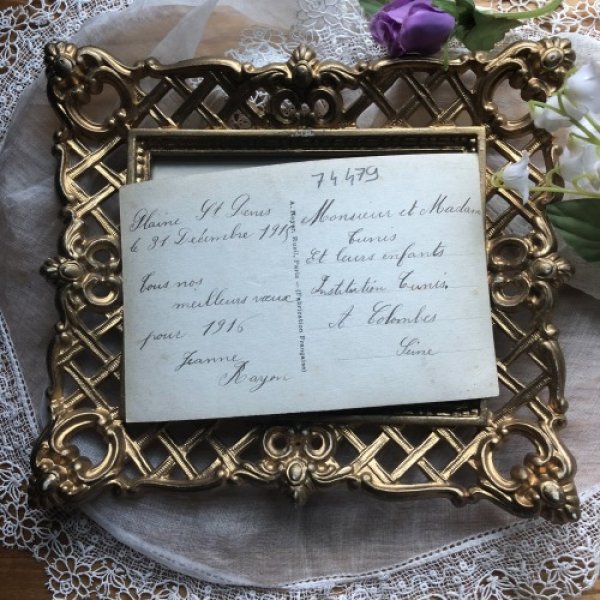 74479
Plaine St Denis
le 31 Décembre 1915
Tous nos
meilleurs vœux
pour 1916
Jeanne
Rayon
A. Noyer, Paris — (Fabrication Française)
Monsieur et Madam
Tunis
Et leurs enfants
Institution Tunis.
A Colombes
Seine